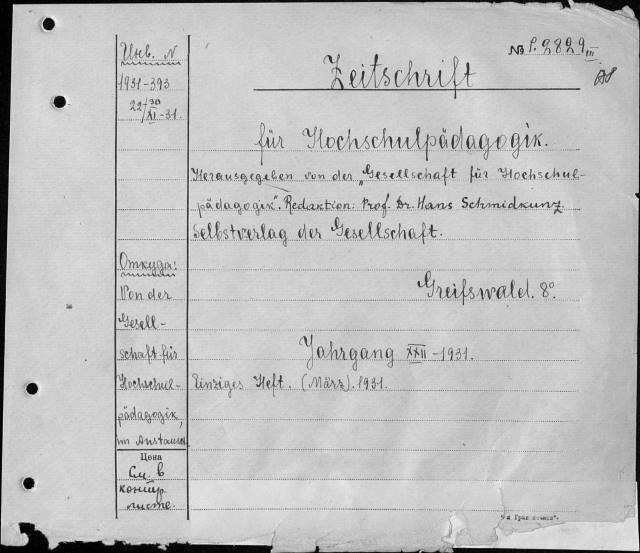 № P. 2829 III
Zeitschrift
für Hochschulpädagogik.
Herausgegeben von der „Gesellschaft für Hochschul-
pädagogik". Redaktion: Prof. Dr. Hans Schmidkunz.
Selbstverlag der Gesellschaft.
Greifswald. 8°
Jahrgang XXII - 1931.
Einziges Heft. (März). 1931.
Инв. N
1931-393
22/XI.-31.
Откуда:
Von der
Gesell-
schaft für
Hochschul-
pädagogik,
im Austausch
Цена
См. в
контр.
листе.